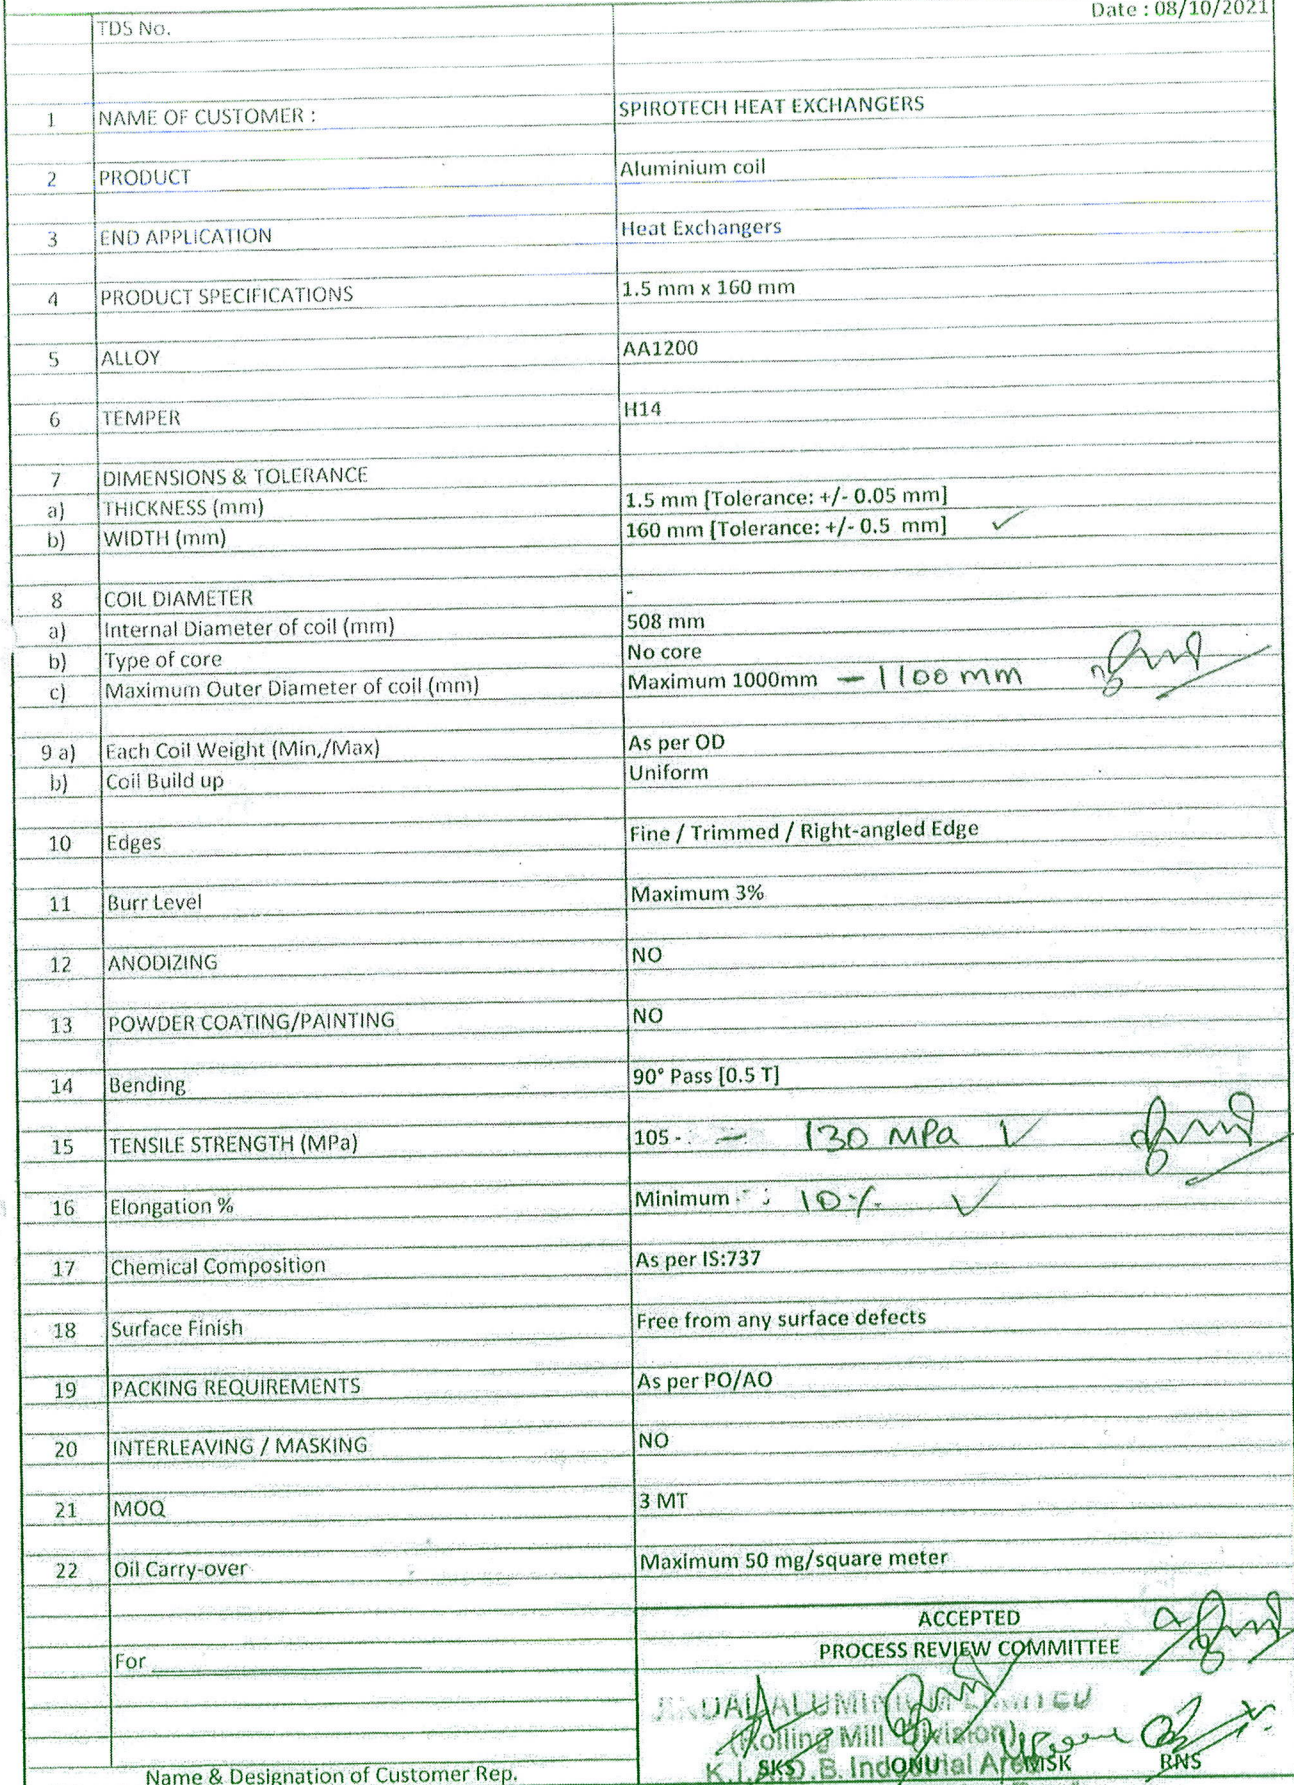 Date : 08/10/2021
TDS No.
1 NAME OF CUSTOMER : SPIROTECH HEAT EXCHANGERS
2 PRODUCT Aluminium coil
3 END APPLICATION Heat Exchangers
4 PRODUCT SPECIFICATIONS 1.5 mm x 160 mm
5 ALLOY AA1200
6 TEMPER H14
7 DIMENSIONS & TOLERANCE
a) THICKNESS (mm) 1.5 mm [Tolerance: +/- 0.05 mm]
b) WIDTH (mm) 160 mm [Tolerance: +/- 0.5 mm] ✓
8 COIL DIAMETER -
a) Internal Diameter of coil (mm) 508 mm
b) Type of core No core
c) Maximum Outer Diameter of coil (mm) Maximum 1000mm - 1100 mm
9 a) Each Coil Weight (Min,/Max) As per OD
b) Coil Build up Uniform
10 Edges Fine / Trimmed / Right-angled Edge
11 Burr Level Maximum 3%
12 ANODIZING NO
13 POWDER COATING/PAINTING NO
14 Bending 90° Pass [0.5 T]
15 TENSILE STRENGTH (MPa) 105 - - 130 MPa ✓
16 Elongation % Minimum 10% ✓
17 Chemical Composition As per IS:737
18 Surface Finish Free from any surface defects
19 PACKING REQUIREMENTS As per PO/AO
20 INTERLEAVING / MASKING NO
21 MOQ 3 MT
22 Oil Carry-over Maximum 50 mg/square meter
ACCEPTED
For PROCESS REVIEW COMMITTEE
JINDAL ALUMINIUM LIMITED
(Rolling Mill Division)
K.I.A.D.B. Industrial Area
SKS ONU MSK RNS
Name & Designation of Customer Rep.